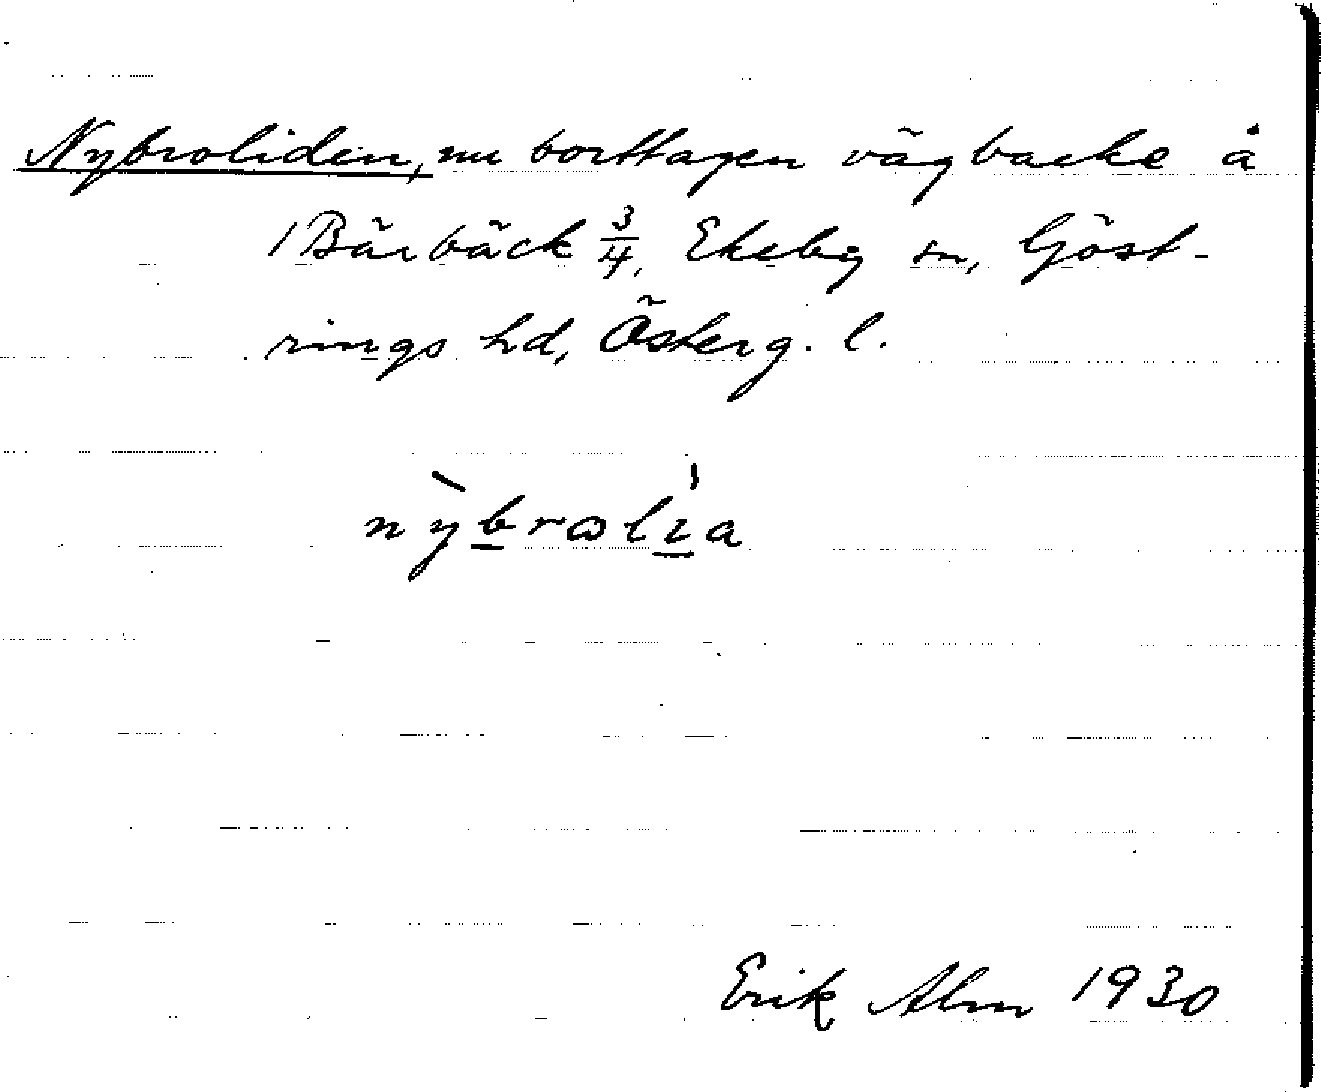 Nybroliden, nu borttagen vägbacke å
1 Bärbäck 3/4, Ekeby sn, Göst-
rings hd, Österg. l.
nỳbrɷlı̍a
Erik Alm 1930